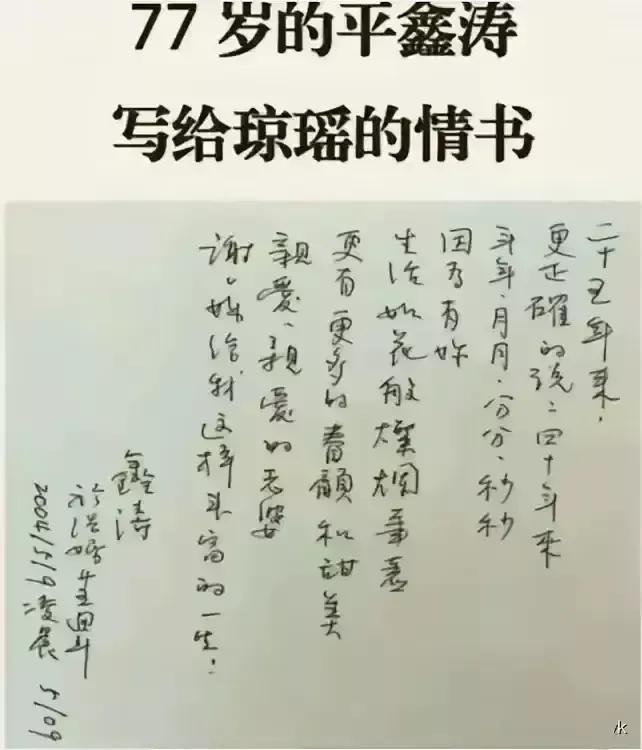 77岁的平鑫涛
写给琼瑶的情书
二十五年来,
更正確的说:四十年来
年年、月月、分分、秒秒
因为有妳
生活如花般燦烂華
更有更多的和甜美
親愛、親愛的老婆
谢谢妳给我这样丰富的一生!
鑫涛
於结婚廿五週年
2004/5/9 凌晨 5/09